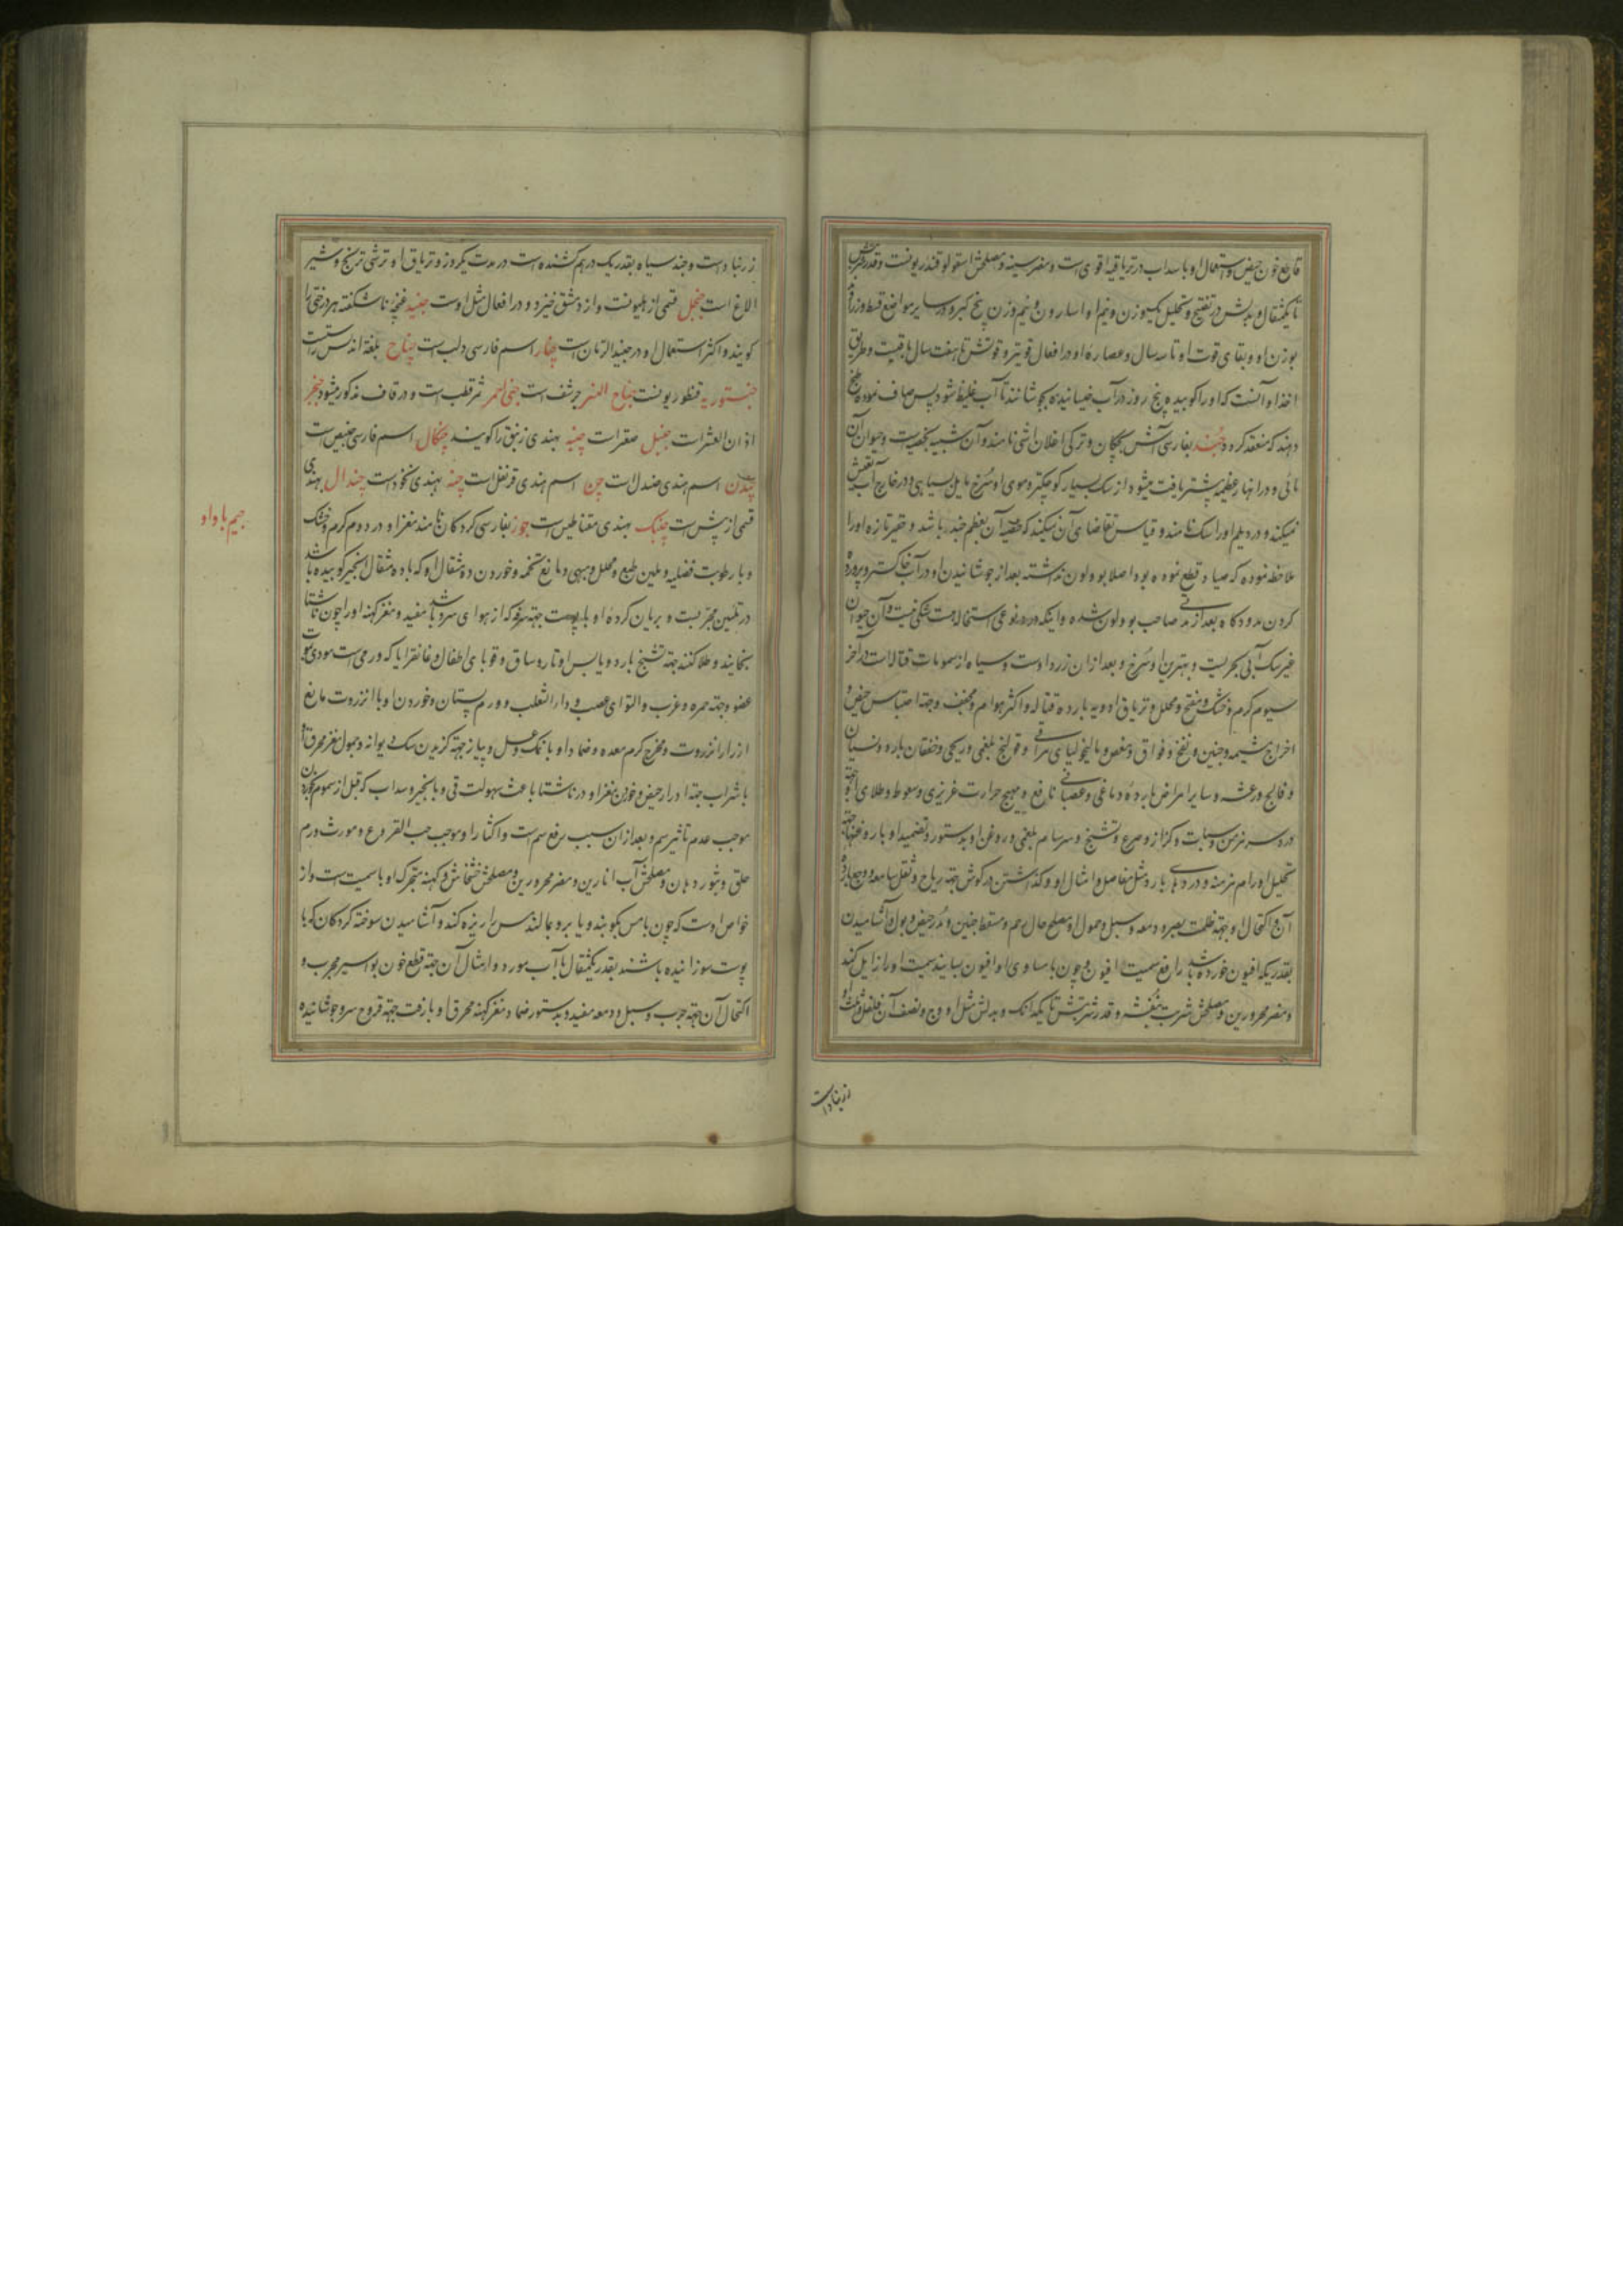 قاطع خون حیض و استعمال او با سداب در تریاقیة اقوی است و مضر سینه و مصلحش اسقولوقندریونست و قدر شربتش
تا یکمثقال و بدلش در تفتیح و تحلیل یکوزن و نیم او اسارون و نیم وزن بیخ کبر و در سایر مواضع قسط و زراوند
بوزن او و بقای قوت او تا سه سال و عصاره او در افعال قویتر و قوتش تا هفت سال باقیست و طریق
اخذ او آنست که او را کوبیده پنج روز در آب خیسانیده بجوشانند تا آب غلیظ شود پس صاف نموده طبخ
دهند که منعقد کردد جند بفارسی آش بچکان و ترکی نامند و آن شبیه بخصیه است و حیوان آن
مائی و در انهار عظیمه بیشتر یافت میشود از سک بسیار کوچکتر و موی او سرخ مایل بسیاهی و در خارج آب تعیش
نمیکند و در دیلم او را سک نامند و قیاس تقاضای آن میکند که خصیه آن بعظم جند نباشد و حقیر تازه او را
ملاحظه نموده که صیاد قطع نموده بود اصلا بو و لون نداشته بعد از جوشانیدن او در آب خاکستر و پرورده
کردن بدود کاه بعد از مدتی صاحب بو و لون شده و اینکه در دو نوعی استحاله است شکی نیست و آن حیوان
غیر سک آبی بحریست و بهترین او سرخ و بعد از ان زرد اوست و سیاه از سمومات قتاله است در آخر
سیوم کرم و خشک و مفتح و محلل و تریاق ادویه بارده قتاله و اکثر هوام و مجفف و جهة احتباس حیض و
اخراج مشیمه و جنین و نفخ و فواق و مغص و مالیخولیای مراقی و قولنج بلغمی و ریحی و خفقان بارد و نسیان
و فالج و رعشه و سایر امراض بارده دماغی و عصبانی نافع و مهیج حرارت غریزی و سعوط و طلای او جهة
درد سر مزمن و سبات و کزاز و صرع و تشنج و سرسام بلغمی و روغن او بدستور و تضمید او با روغنها جهة
تحلیل اورام مزمنه و دردهای بارد مثل مفاصل و امثال او و کذاشتن در کوش جهة ریاح و ثقل سامعه و وجع بارد
آن و اکتحال او جهة ظلمت بصر و دمعه و سبل و حمول او مصلح حال رحم و مسقط جنین و مدر حیض و بول و آشامیدن
بقدریکه افیون خورده باشد رافع سمیت افیون و چون با مساوی او افیون بسایند سمیت او را زایل کند
و مضر محرورین و مصلحش شربت بنفشه و قدر شربتش تا یکدانک و بدلش مثل او وج و نصف آن فلفل و ثلث او
زرنباد است
زرنباد است و جند سیاه بقدر یک درهم کشنده است در مدت یکروز و تریاق او ترشی ترنج و شیر
الاغ است جنجل قسمی از هلیونست و از دمشق خیزد و در افعال مثل اوست جنبد غنچه ناشکفته هر درختی را
کویند و اکثر استعمال او در جنبد الرمان است چنار اسم فارسی دلب است جناح بلغة اندلس راسنست
جنستوریه قنطوریونست جناح النسر حرشف است جنی احمر ثمر قطلب است و در قاف مذکور میشود جنجر
اذان العنز است جنبل صقر است چنبه بهندی زنبق را کویند چنکال اسم فارسی خبیص است
چندن اسم هندی صندل است چن اسم هندی قرنفل است چنه بهندی نخود است چندال بهندی
قسمی از پیش است چنبک بهندی مقناطیس است جوز بفارسی کردکان نامند مغز او در دوم کرم و خشک
و با رطوبت فضلیه و ملین طبع و محلل و مبهی و مانع تخمه و خوردن ده مثقال او که با ده مثقال انجیر کوبیده باشند
در تلیین مجربست و بریان کرده او با پوست جهة سرفه که از هوای سرد باشد مفید و مغز کهنه او را چون ناشتا
بخایند و طلا کنند جهة تشنج بارد و یابس اوتار و ساق و قوبای اطفال و غانقرایا که ورمی است مودی بموت
عضو و جهة جمره و غرب و التوای عصب و دار الثعلب و ورم پستان و خوردن او با انزروت مانع
ازرار انزروت و مخرج کرم معده و ضماد او با نمک و عسل و پیاز جهة کزیدن سک دیوانه و حمول مغز محرق او
با شراب جهة ادرار حیض و خوردن مغز او در ناشتا باعث سهولت قی و با انجیر و سداب که قبل از سموم خورند
موجب عدم تاثیر سم و بعد از ان سبب رفع سم است و اکثار او موجب حب القرع و مورث ورم
حلق و بثور دهان و مصلحش آب انارین و مضر محرورین و مصلحش خشخاش و کهنه متحرک او با سمیت است و از
خواص اوست که چون با مس بکوبند و یا برو بمالند مس را ریزه کند و آشامیدن سوخته کردکان که با
پوست سوزانیده باشند بقدر یکمثقال با آب مورد و امثال آن جهة قطع خون بواسیر مجرب و
اکتحال آن جهة جرب و سبل و دمعه مفید و بدستور ضماد مغز کهنه محرق او با زفت جهة قروح سر و جوشانیده
جیم با واو